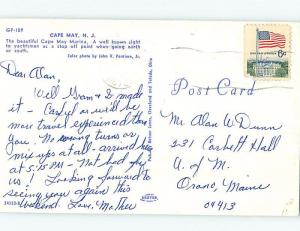 GF-109
CAPE MAY, N. J.
The beautiful Cape May Marina. A well known sight
to yachtsmen as a stop off point when going north
or south.
Color photo by John R. Pantiere, Jr.
6¢
Post Card
Dear Alan,
Well Gram & I made
it - Carlyl or will be
more travel experienced than
you. No wrong turns or
mixups at all - arrived here
at 5,15 P.M. - Not bad for
us! Looking forward to
seeing you again this
weekend. Love, Mother
Mr Alan W Dunn
231 Corbett Hall
U. of M.
Orono, Maine
04413
DEXTER